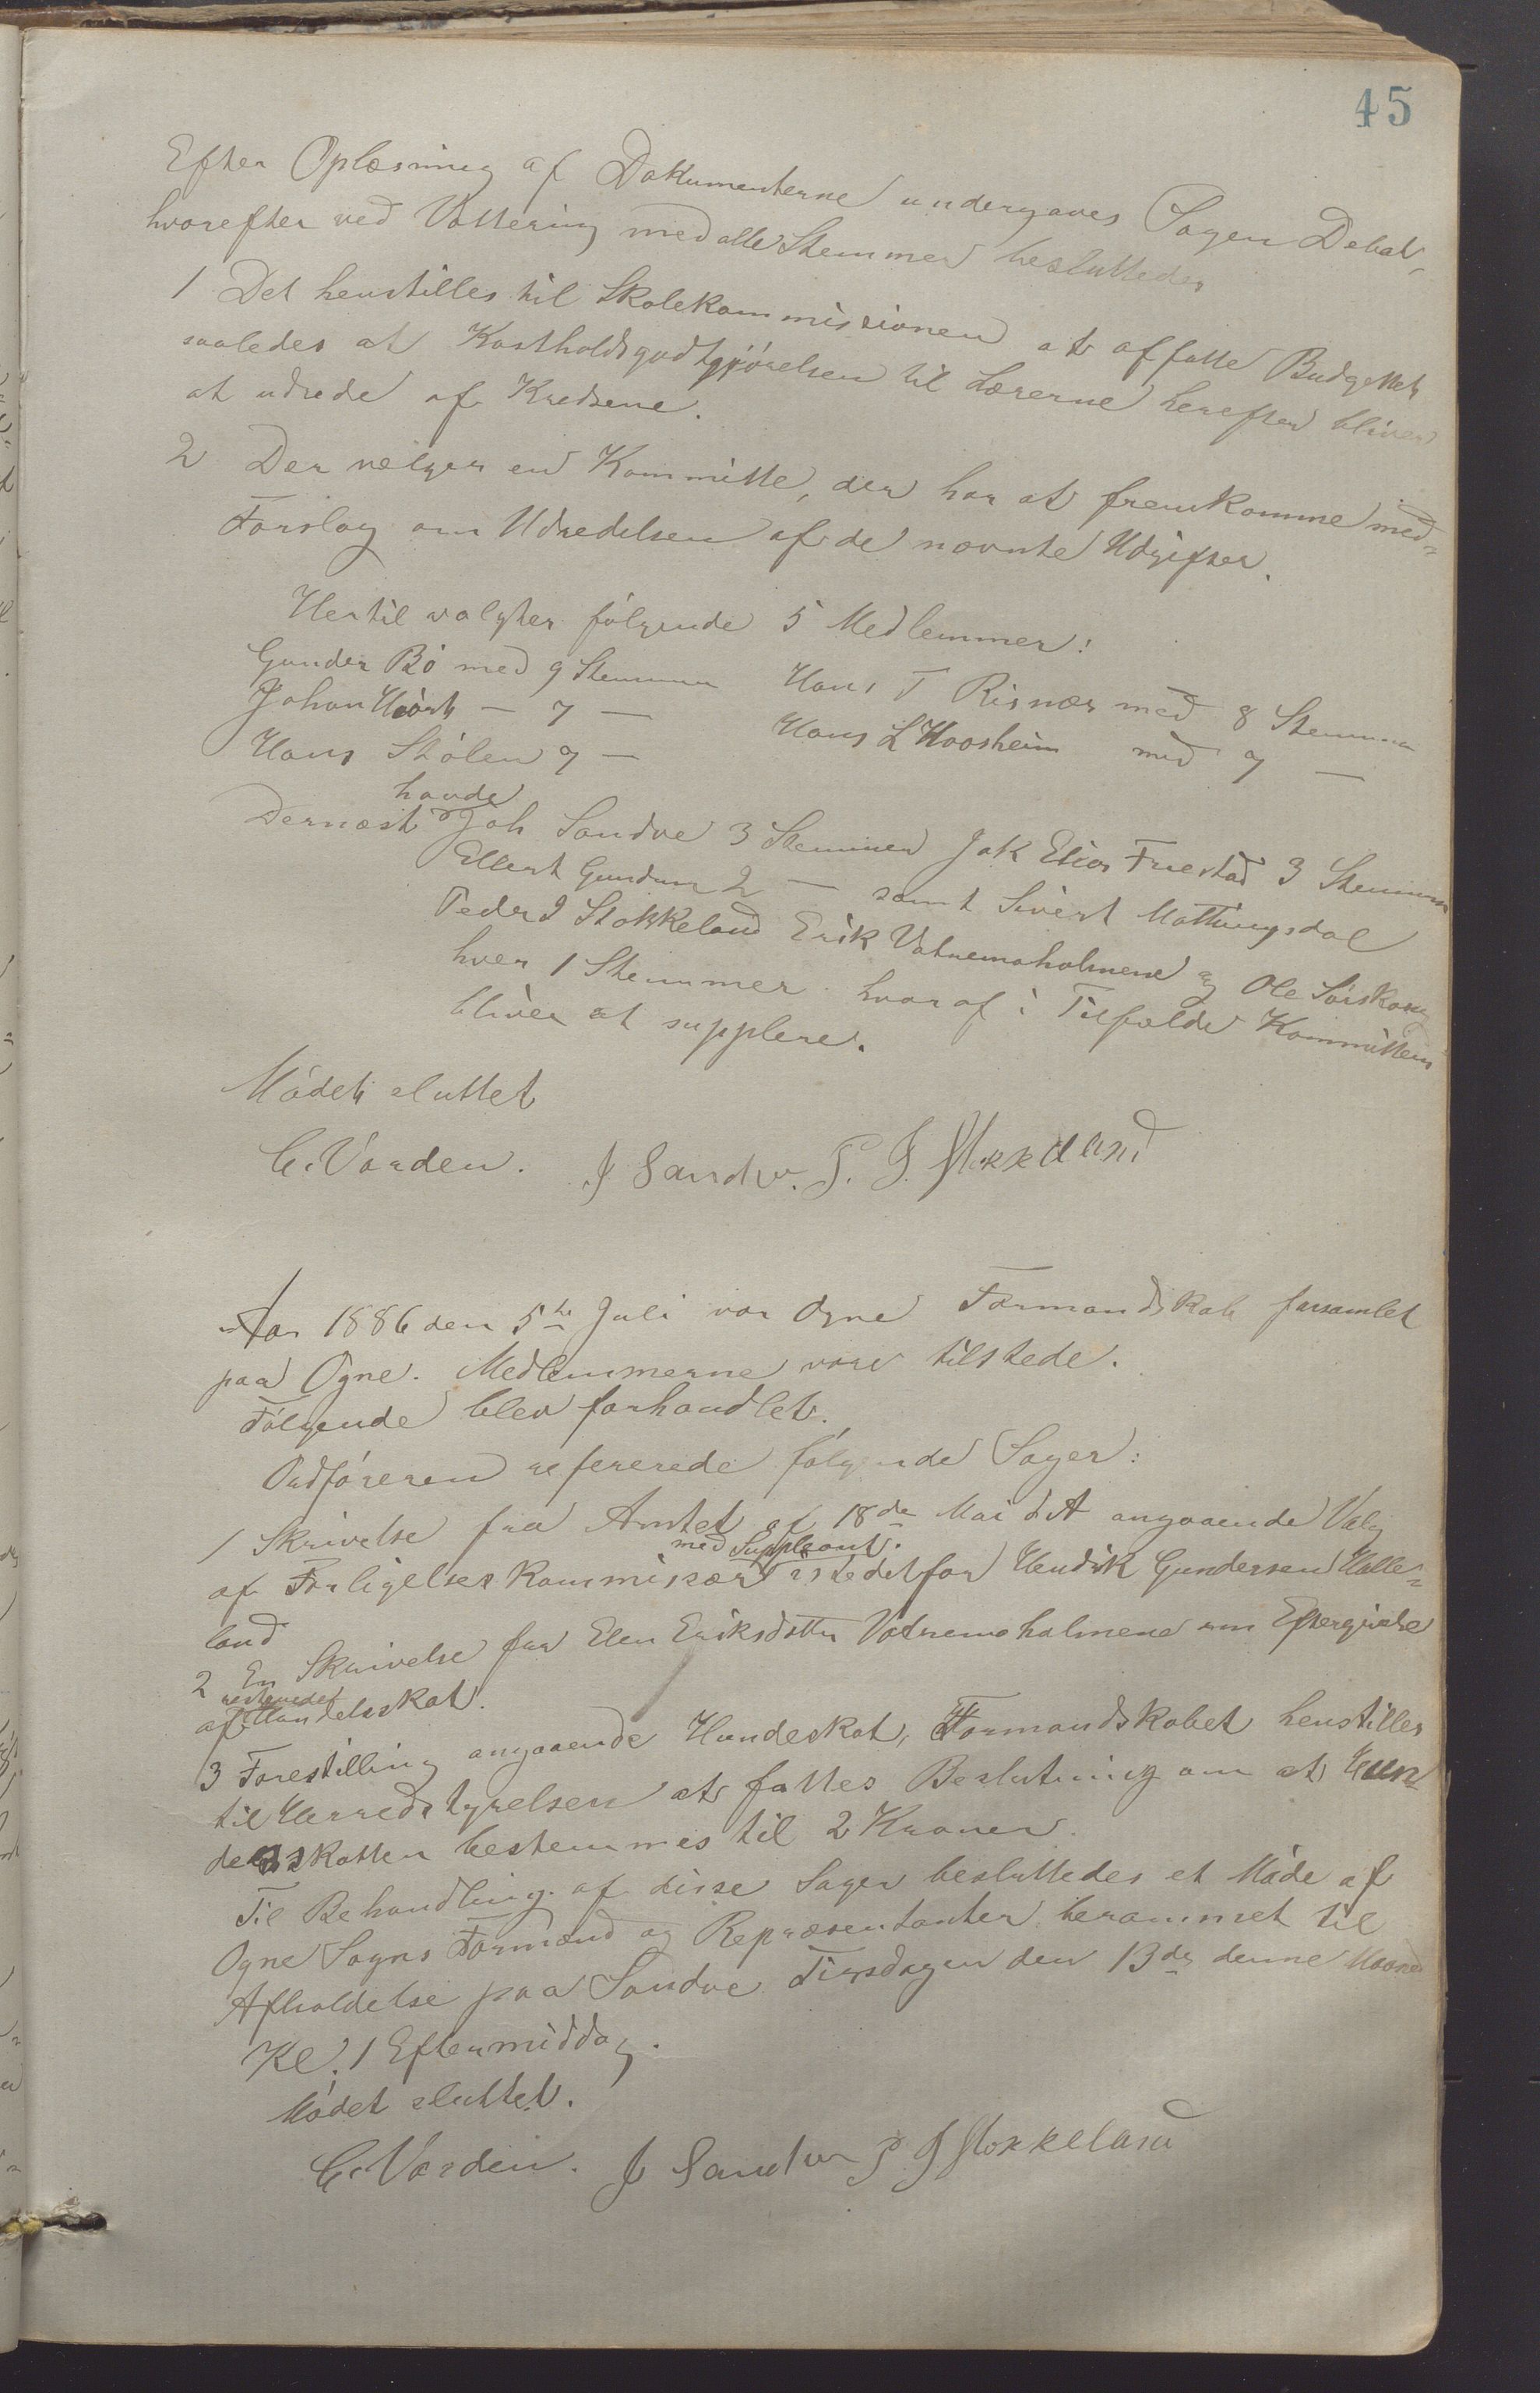 45
Efter Oplæsning af Dokumenterne undergaves Sagen Debat,
hvorefter ved Vottering med alle Stemmer besluttedes
1 Det henstilles til Skolekommissionen at affatte Budgettet
saaledes at Kostholdsgodtgjørelsen til Lærerne herefter bliver
at udrede af Kredsene.
2 Der vælges en Kommitte, der har at fremkomme med
Forslag om Udredelsen af de nævnte Udgifter.
Hertil valgtes følgende 5 Medlemmer:
Gunder Bø med 9 Stemmer Hans T Risnæs med 8 Stemmer
Johan — 7 — Hans L Haasheim med 7 —
Hans Stølen 7 —
havde
Dernæst Joh Sandve 3 Stemmer Jak Elias Fuestad 3 Stemmer
Ellert Gundersen 2 — samt Sivert Mattingsdal
Peder I Stokkeland Erik Vatnemoholmene og Ole Sørskoug
hver 1 Stemmer. hvoraf i Tilfælde Kommitteen
bliver at supplere.
Mødet sluttet
C. Varden. J Sandve. P. I. Stokkeland
Aar 1886 den 5te Juli var Ogne Formandskab forsamlet
paa Ogne. Medlemmerne vare tilstede.
Følgende blev forhandlet.
Ordføreren refererede følgende Sager:
1 Skrivelse fra Amtet af 18de Mai d A angaaende Valg
med Suppleant.
af Forligelses Kommisær istedetfor Hendrik Gundersen Halle=
land
2 En Skrivelse fra Elen Eriksdatter Vatnemoholmene om Eftergivelse
resterende
af Handelsskat.
3 Forestilling angaaende Hundeskat, Formandskabet henstilles
til Herredstyrelsen at fattes Beslutning om at Hun
deskatten bestemmes til 2 Kroner.
Til Behandling af disse Sager besluttedes et Møde af
Ogne Sogns Formænd og Repræsentanter berammet til
Afholdelse paa Sandve Tirsdagen den 13de denne Maaned
Kl. 1 Eftermiddag.
Mødet sluttet.
C. Varden. J Sandve P I Stokkeland